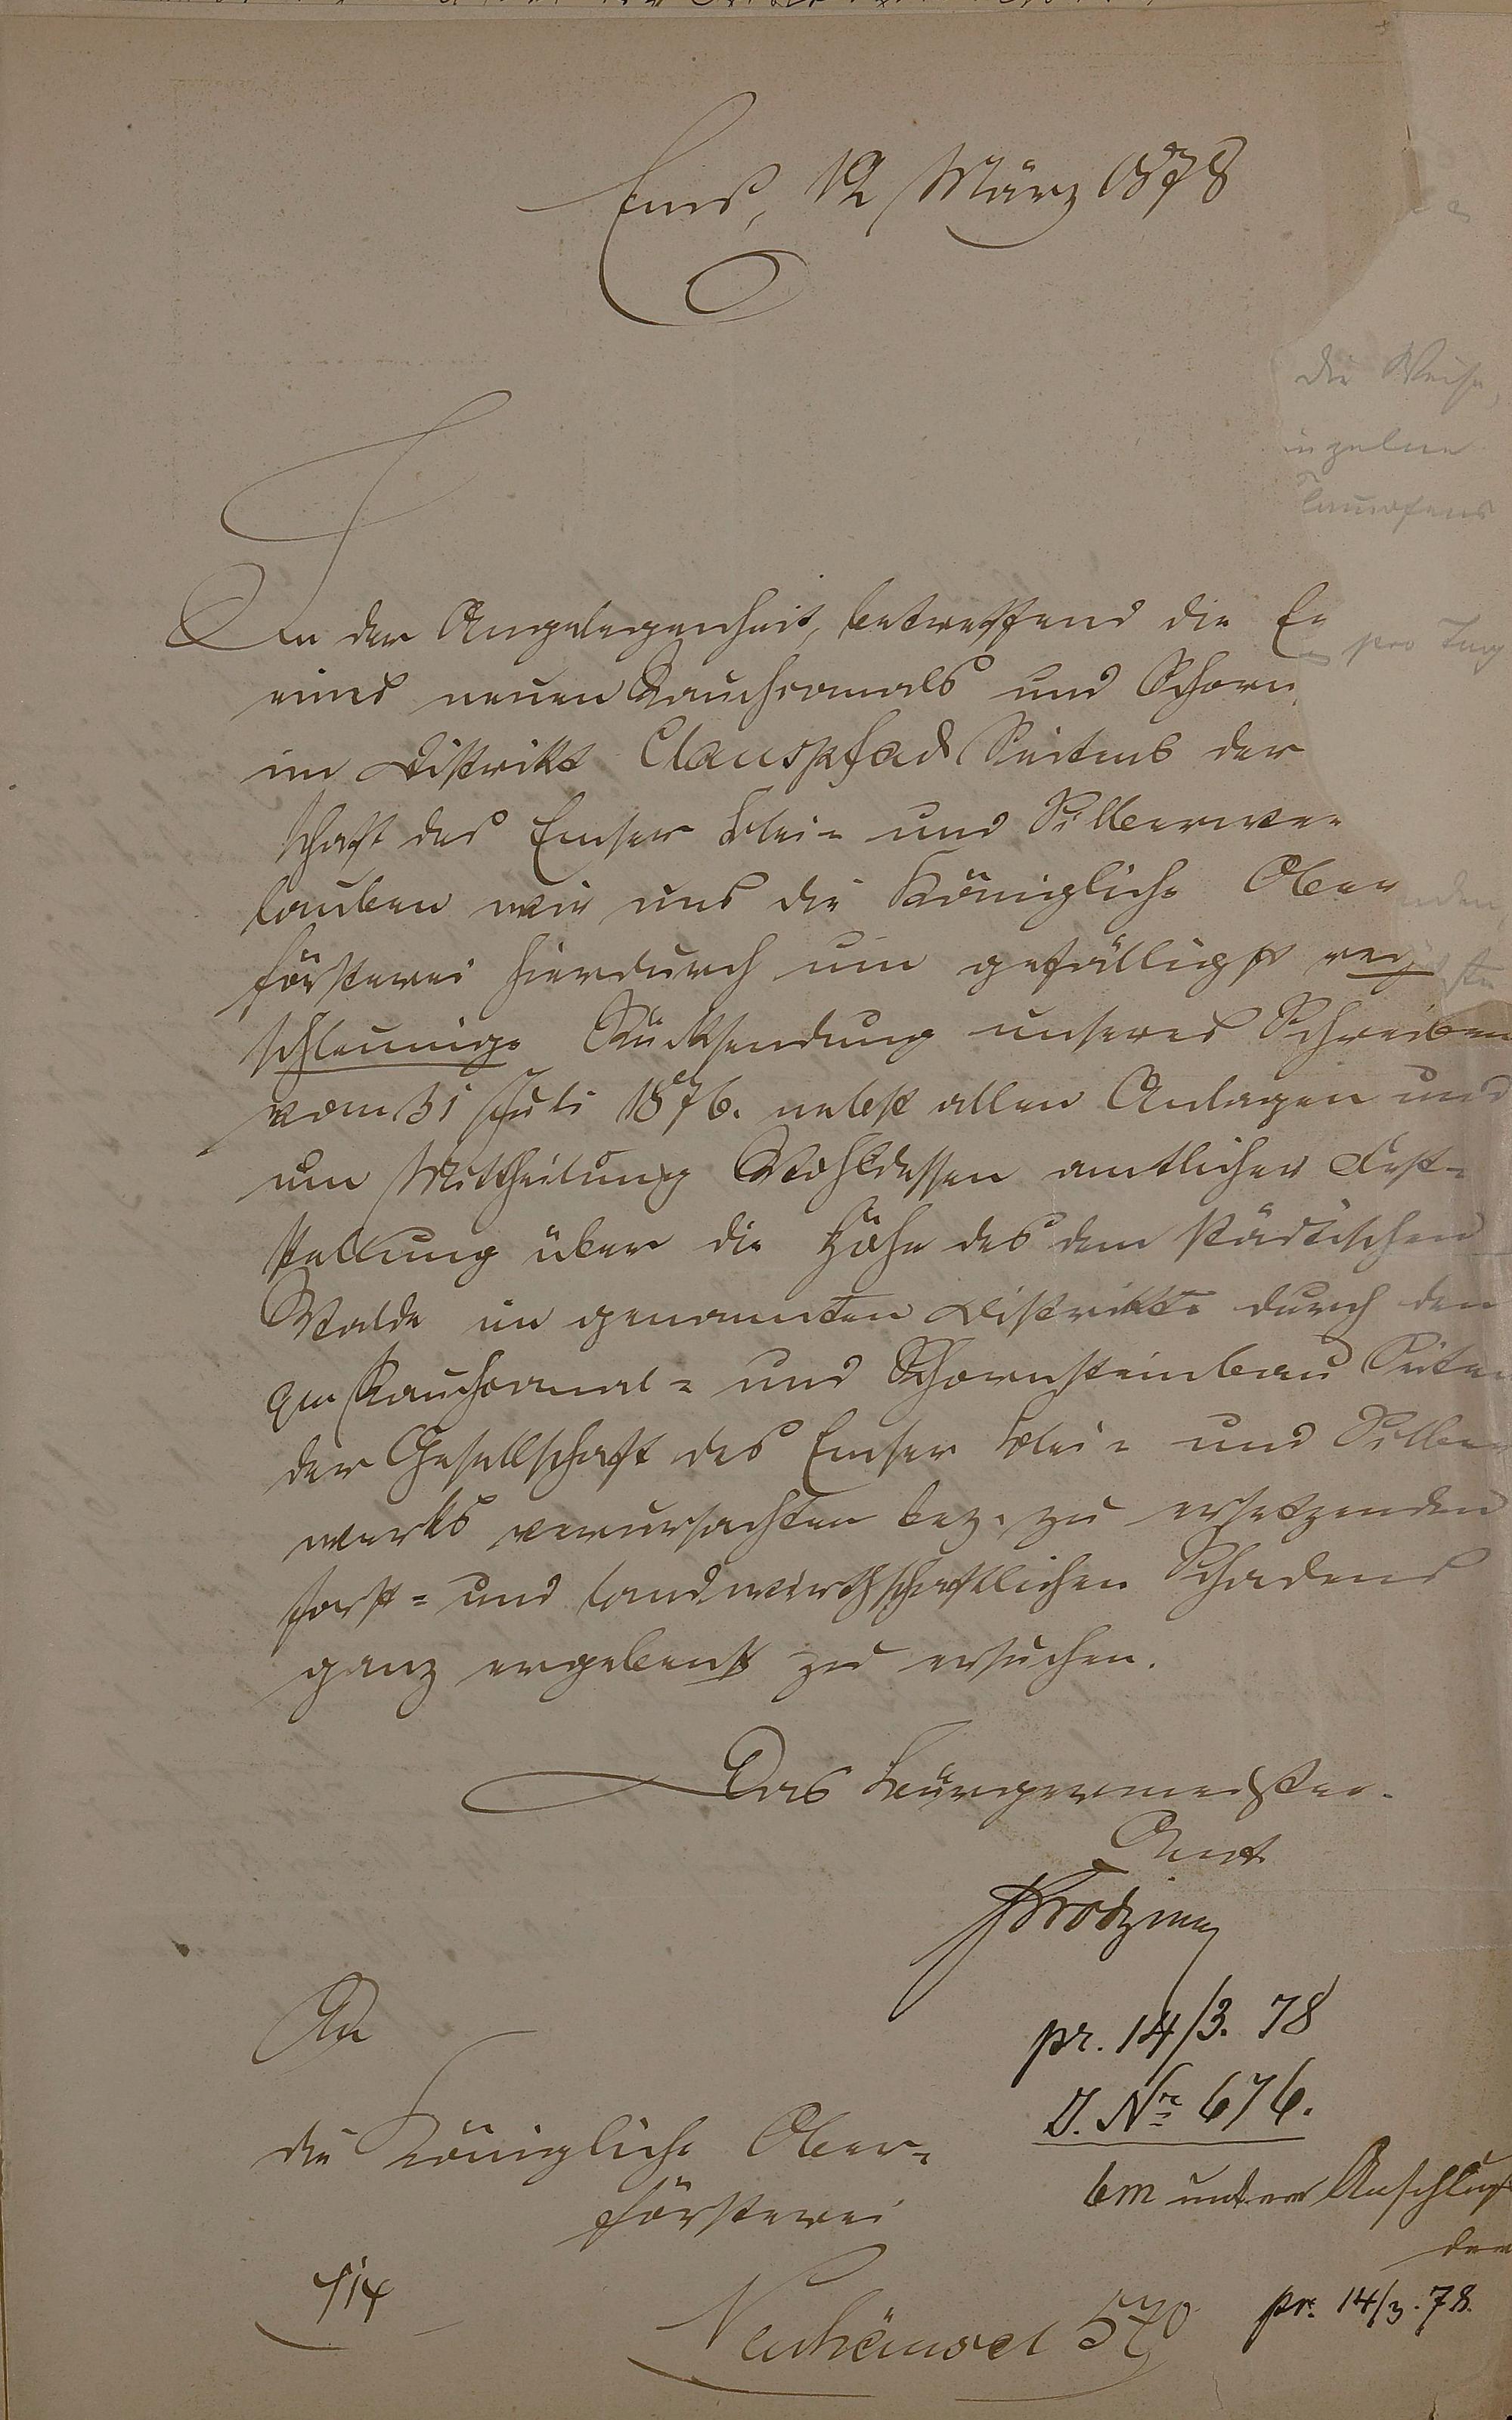 Ems, 12 März 1878
In der Angelegenheit, betreffend die Er
eines neuen Rauchcanals und Schorn
im Distrikt Clauspfad Seitens der
schaft des Emser Blei- und Silberwer
lauben wir uns die Königliche Ober
försterei hierdurch um gefälligst
schleunige Rücksendung unseres Schreibens
vom 31 Juli 1876. nebst allen Anlagen und
um Mittheilung Wohldessen amtlicher Fest-
stellung über die Höhe des dem städtischen
Walde im genannten Distrikte durch den
qu Rauchcanal- und Schornsteinbau Seiten
der Gesellschaft des Emser Blei- und Silber
werks verursachten bez. zu ersetzenden
forst- und landwirthschaftlichen Schadens
ganz ergebenst zu ersuchen.
Das Bürgermeister-
Amt
An
die Königliche Ober-
försterei
Neuhäusel
pr. 14/3. 78
J. Nr 676.
unter Anschluß
der
pr. 14/3. 78.
die Weise,
inzelne
pro Tag